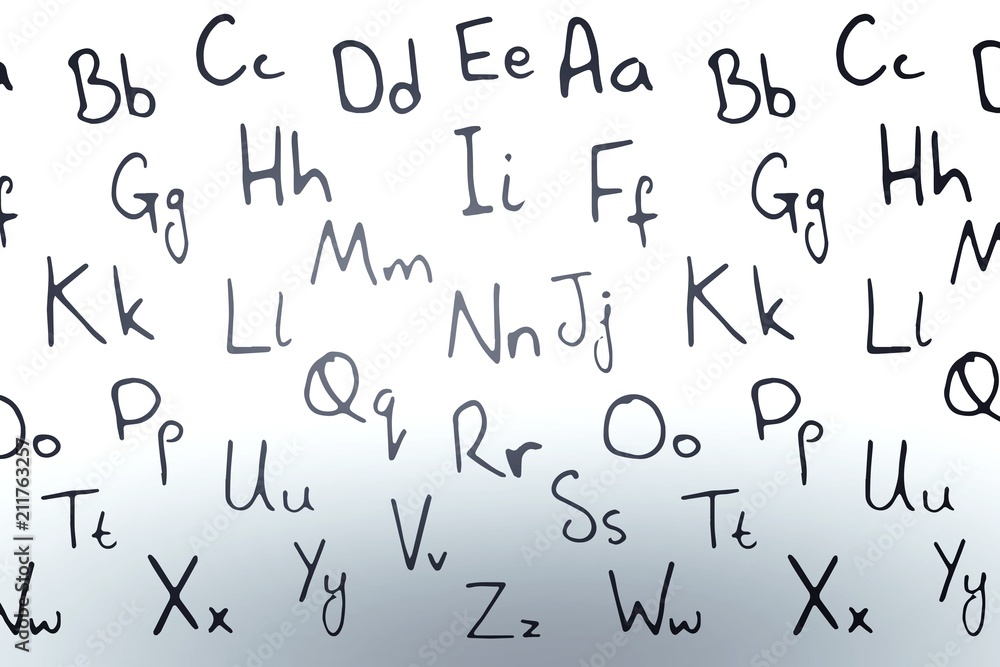 a Bb Cc Dd Ee Aa Bb Cc D
f Gg Hh Ii Ff Gg Hh
Kk Ll Mm Nn Jj Kk Ll M
Oo Pp Qq Rr Oo Pp Q
Tt Uu Vv Ss Tt Uu
Ww Xx Yy Zz Ww Xx Yy
Adobe Stock | #211763257